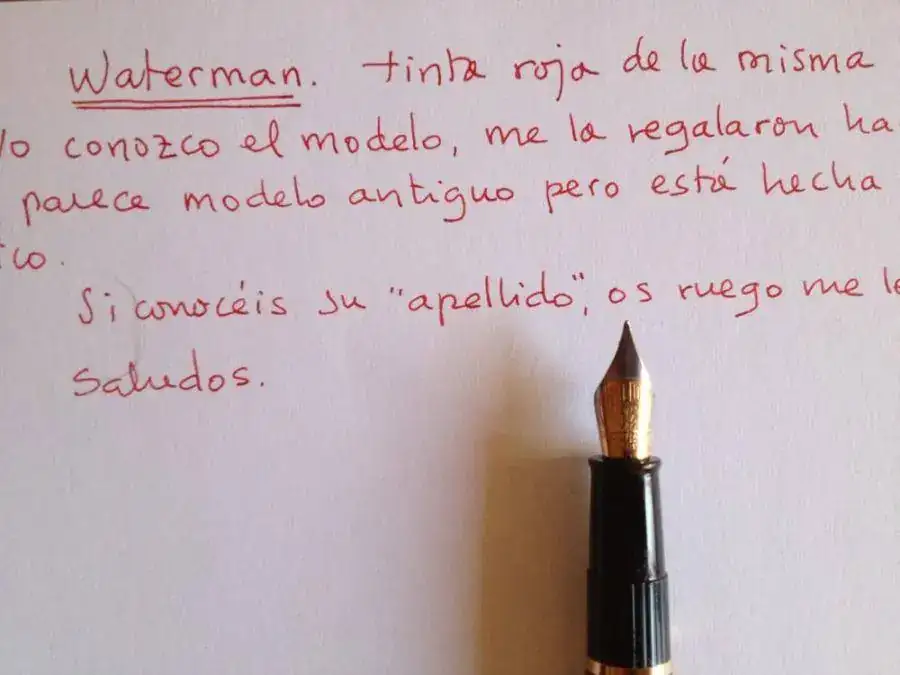 Waterman. tinta roja de la misma
No conozco el modelo, me la regalaron ha
parece modelo antiguo pero está hecha
ico.
Si conocéis su "apellido", os ruego me le
Saludos.